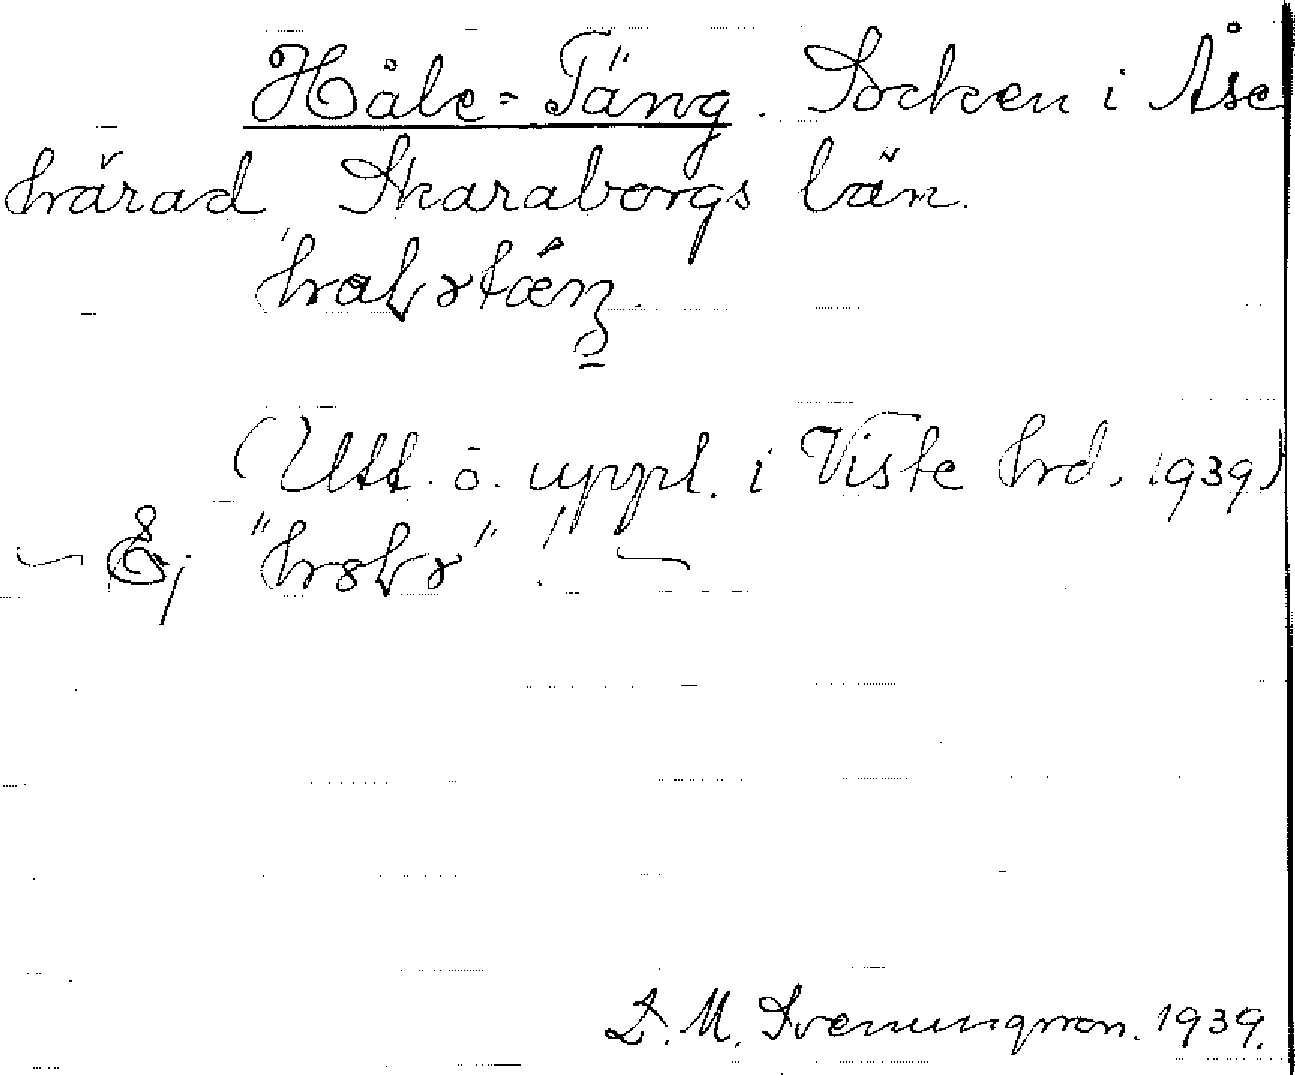 Håle-Täng. Socken i Åse
härad Skaraborgs län.
(Utt. o. uppt. i Viste hrd. 1939)
— Ej " " ! —
D. M. Svenungsson. 1939.